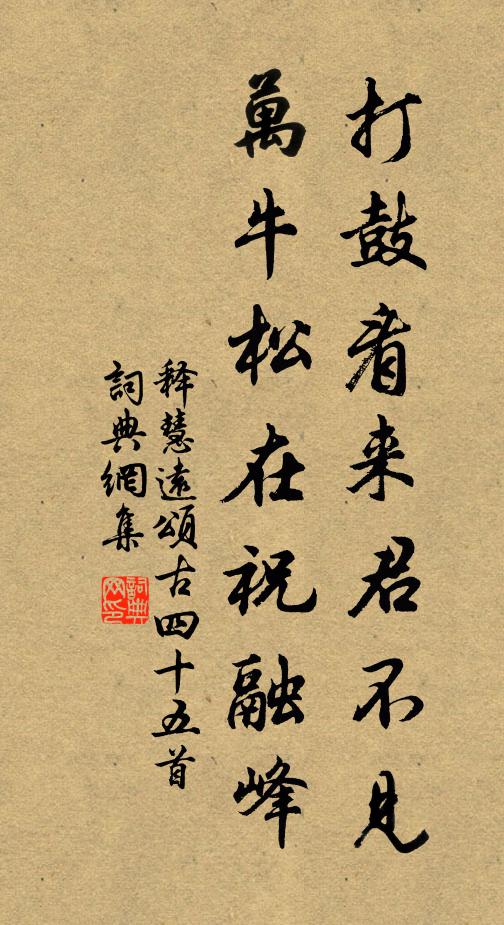 打鼓看来君不見
萬牛松在祝融峰
釋慧遠頌古四十五首
詞典網集
詞典网印